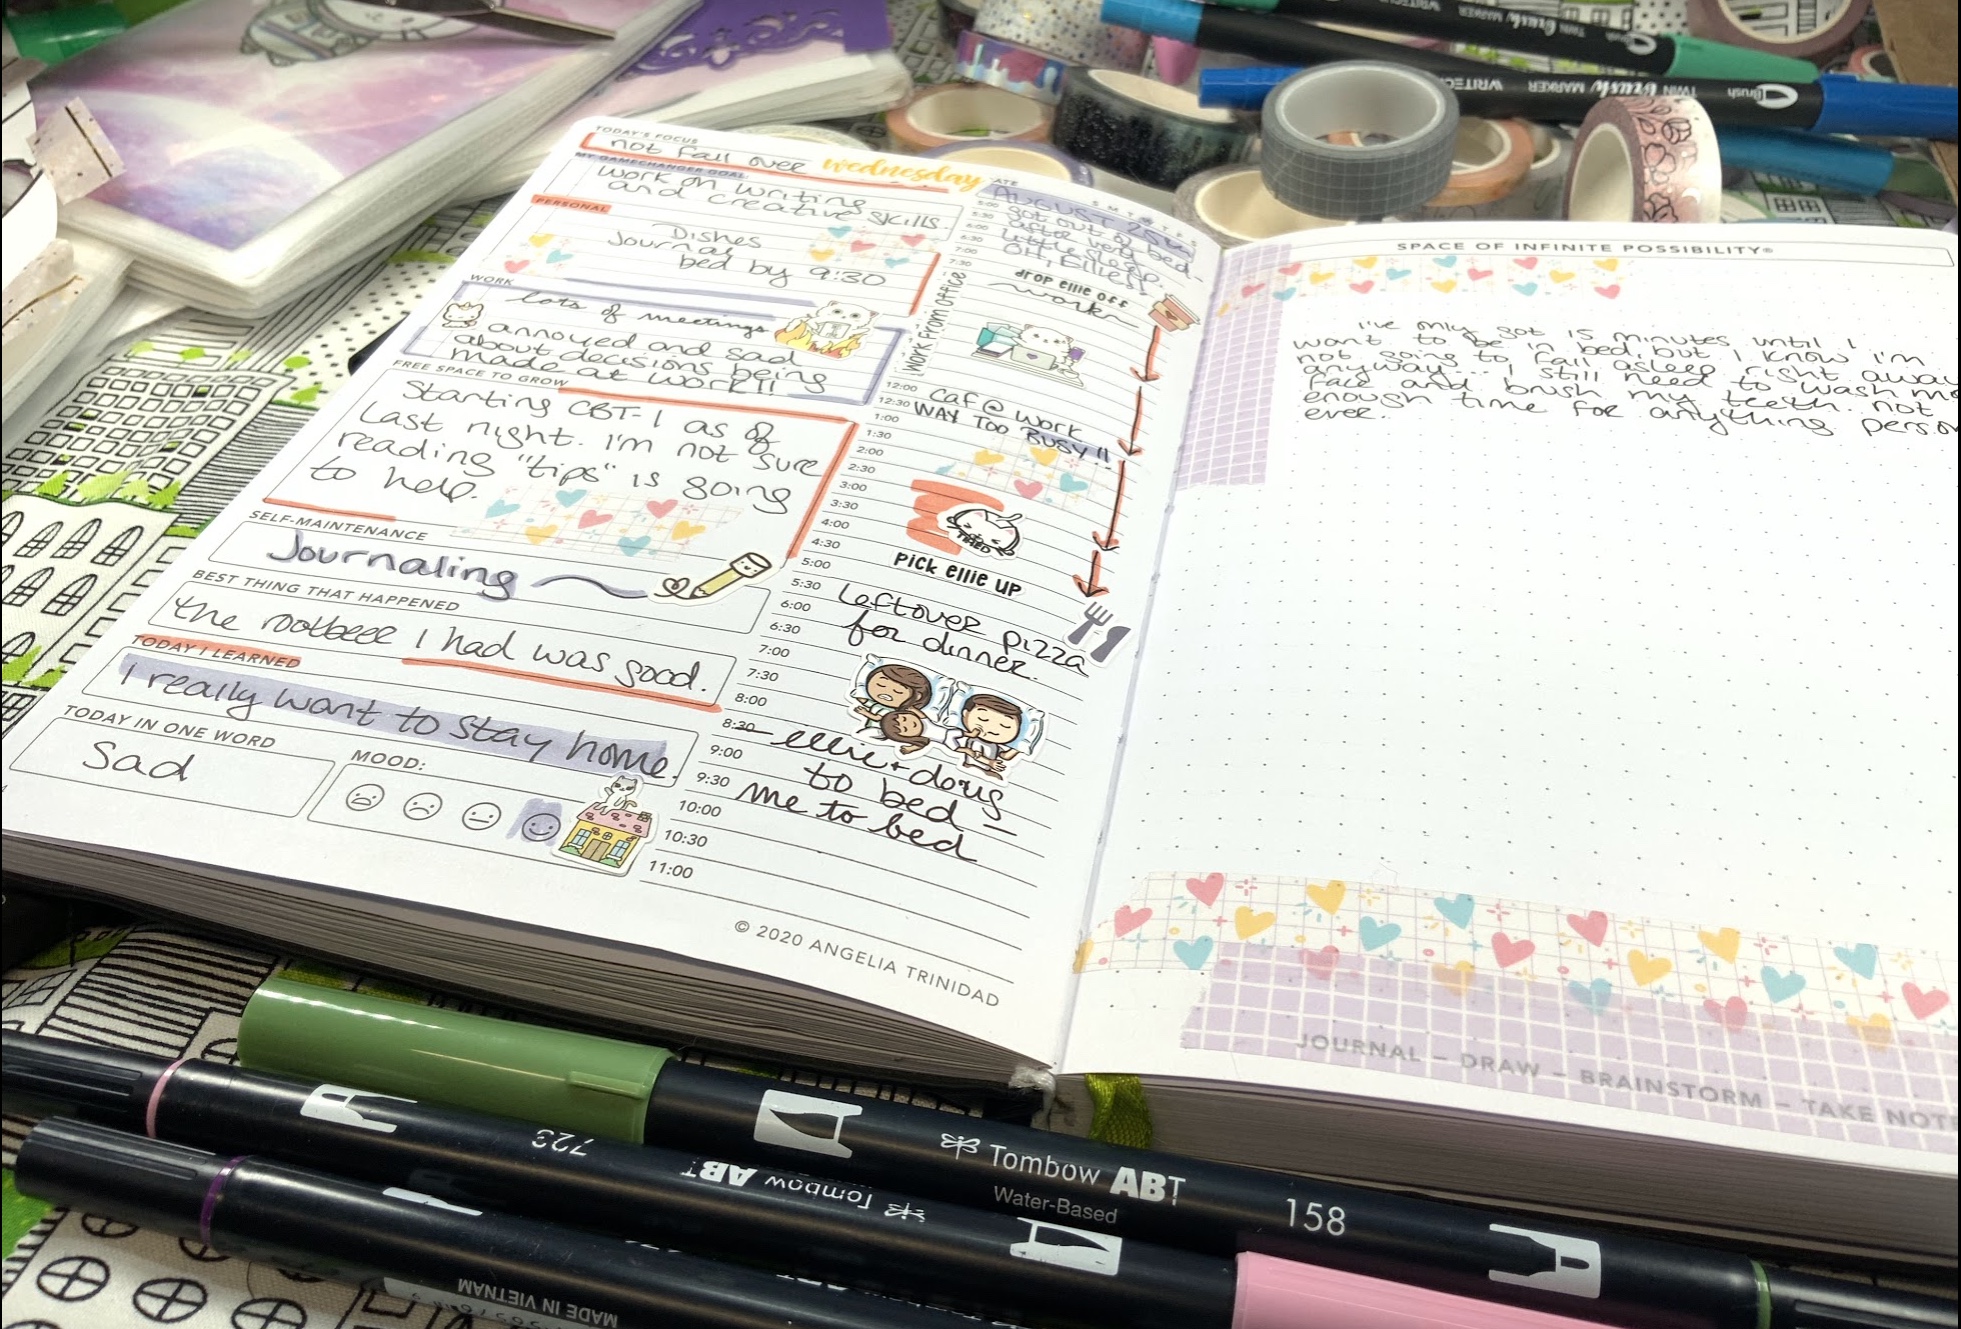 TODAY'S FOCUS
not fall over
wednesday
MY GAMECHANGER GOAL:
work on writing
and creative skills.
PERSONAL
Dishes
Journal
bed by 9:30
WORK
lots of meetings
annoyed and sad
about decisions being
made at work!!
FREE SPACE TO GROW
Starting CBT-I as of
Last night. I'm not sure
reading "tips" is going
to help.
SELF-MAINTENANCE
Journaling
BEST THING THAT HAPPENED
the rootbeer I had was good.
TODAY I LEARNED
I really want to stay home.
TODAY IN ONE WORD
Sad
MOOD:
ATE
S M T T F S
AUGUST 25th
5:00
5:30
6:00
6:30
7:00
7:30
got out of bed
after very
little sleep.
Oh, Ellie!!
drop ellie off
work
Work From Office
12:00
12:30
1:00
1:30
2:00
2:30
3:00
3:30
4:00
4:30
5:00
5:30
6:00
6:30
7:00
7:30
8:00
8:30
9:00
9:30
10:00
10:30
11:00
caf @ work
WAY TOO BUSY!!
TIRED
PICK ELLIE UP
Leftover pizza
for dinner.
ellie + doug
to bed –
me to bed
© 2020 ANGELIA TRINIDAD
SPACE OF INFINITE POSSIBILITY®
I've only got 15 minutes until I
want to be in bed, but I know I'm
not going to fall asleep right away
anyway... I still need to wash m
face and brush my teeth. not
enough time for anything person
ever.
JOURNAL – DRAW – BRAINSTORM – TAKE NOTE
TWIN brush MARKER
WRITECH
TWIN brush MARKER
WRITECH
Brush
Tombow ABT
Water-Based
158
723
Tombow ABT
MADE IN VIETNAM